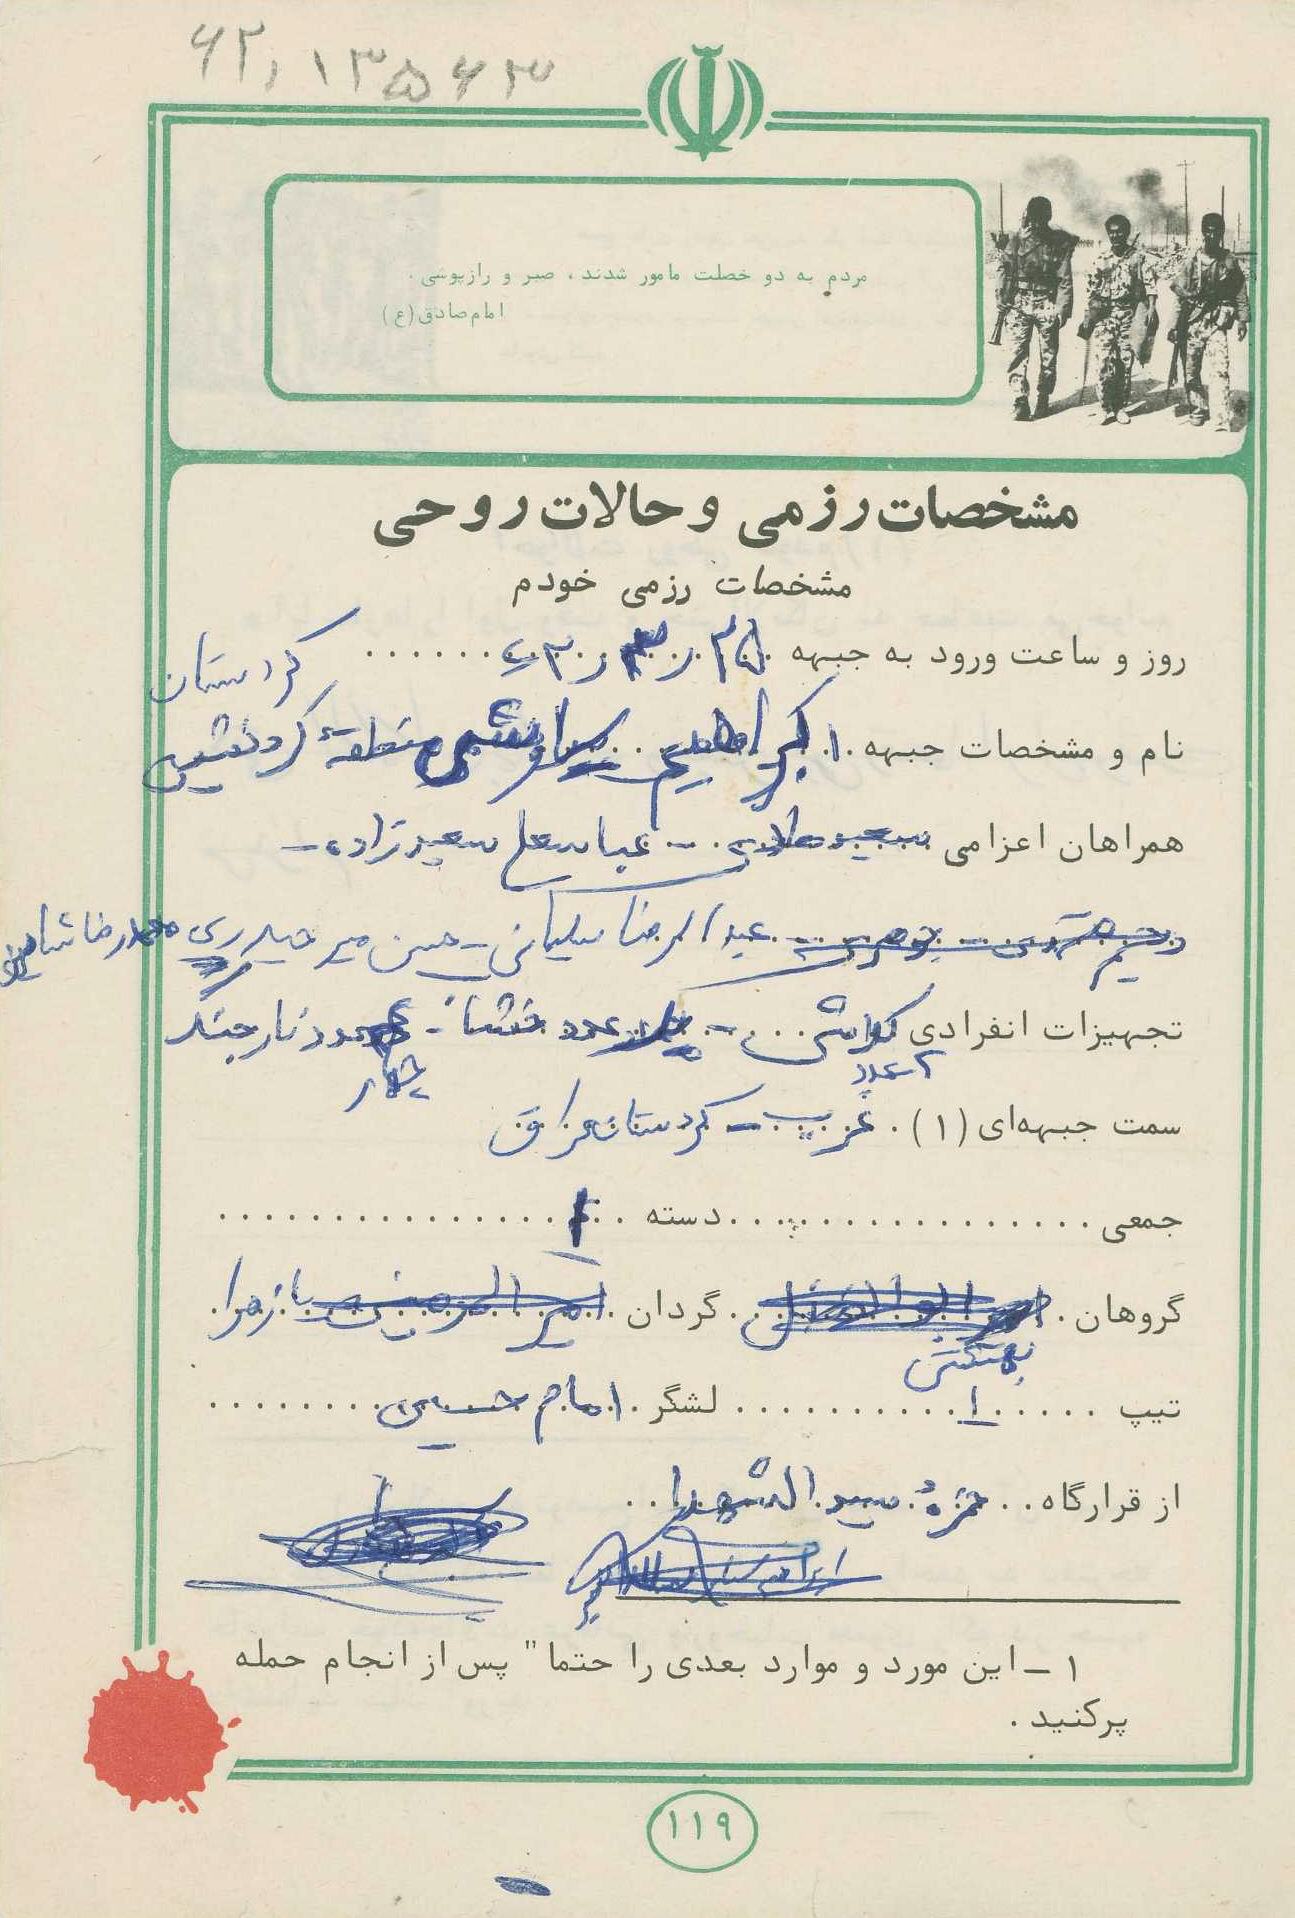 ۶۲،۱۳۵۶۳
مردم به دو خصلت مامور شدند ، صبر و رازپوشی .
امام صادق (ع)
مشخصات رزمی و حالات روحی
مشخصات رزمی خودم
روز و ساعت ورود به جبهه ۲۵ ر ۳ ر
کردستان
نام و مشخصات جبهه منطقهٔ کردنشین
همراهان اعزامی سعید – عباسعلی سعیدزاده –
رحیم – عبدالرضا سلیمانی – حسن میر حیدری محمدرضا
تجهیزات انفرادی کلاش – عدد خشاب – عدد نارنجک
۲ عدد چهار
سمت جبهه‌ای (۱) . غرب – کردستان عراق
جمعی . . . . . دسته ۱
گروهان گردان یا زهرا
بهشتی
تیپ ۱ لشگر امام حسین
از قرارگاه حمزهٔ سیدالشهدا
۱ – این مورد و موارد بعدی را حتما" پس از انجام حمله
پرکنید .
۱۱۹